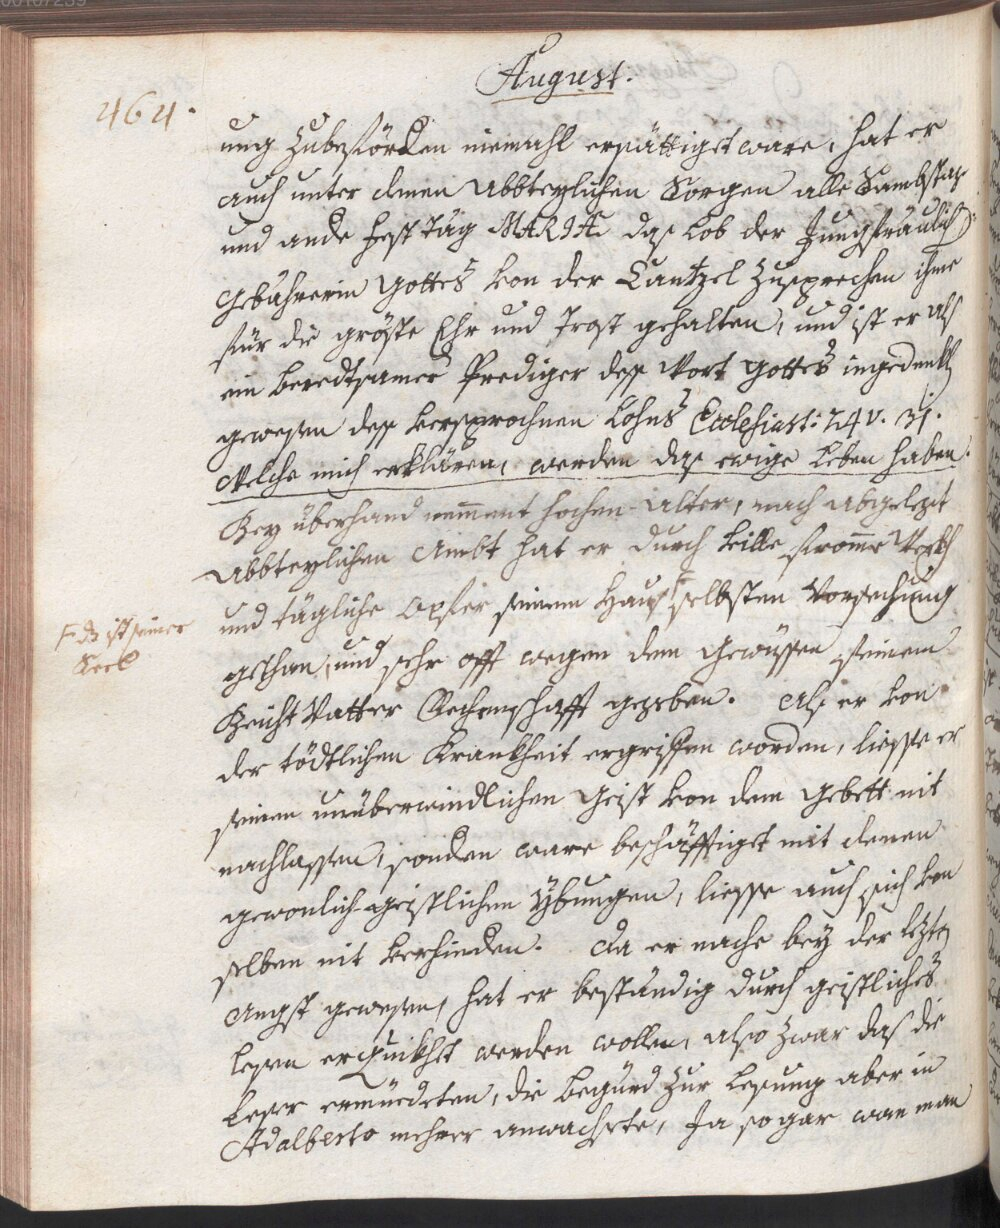 August.
464.
ung Zubestörcken niemahl ersättiget ware, hat er
auch unter denen Abbteylichen Sorgen alle Sambstag
und ande fest täg MARIAE das Lob der Jungfräulich:
Gebährerin Gottes von der Cantzel Zusprechen ihme
für die gröste Ehr und Trost gehalten, und ist er als
ein beredtsamer Prediger dess Wort Gottes ingedenkh
gewesen dess versprochnen Lohns Ecclesiast: 24 v. 31.
Welche mich erklären, werden das ewige Leben haben.
Bey überhand nemment hochen Alter, nach abgelegt
Abbteylichen Ambt hat er durch Ville fromme Werkh
und tägliche Opfer seinem Hauß selbsten Vorsechung
F dz ist seiner
Seel
gethan, und sehr offt wegen dem Gewüssen seinem
Beicht Vatter Rechenschafft gegeben. Als er von
der tödtlichen Krankheit ergriffen worden, liesse er
seinen unüberwindlichen Geist von dem Gebett nit
nachlassen, sonden ware beschäfftiget mit denen
gewonlich-geistlichen Ybungen, liesse auch sich von
selben nit verhinden. Da er nache bey der lezten
Angst gewesen, hat er beständig durch geistliches
lesen erquickhet werden wollen, also zwar das die
Leser ermüedeten, die begürd zur Lesung aber in
Adalberto mehrer anwachsete, Ja so gar wan man